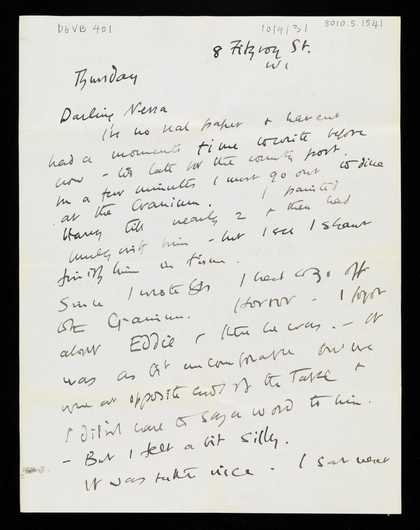 DbVB 401
10/9/31
8010.5.1541
8 Fitzroy St.
W1
Thursday
Darling Nessa
no real paper & havent
had a moments time to write before
now - its late for the country post.
In a few minutes I must go out to dine
at the Cranium. I painted
Harry till nearly 2 & then had
lunch with him - but I see I shant
finish him in time.
Since I wrote this I had to go off
to the Cranium. Horror - I forgot
about Eddie & there he was. - It
was a bit uncomfortable but we
were at opposite ends of the Table &
I didn't have to say a word to him.
- But I felt a bit silly.
It was rather nice. I sat next